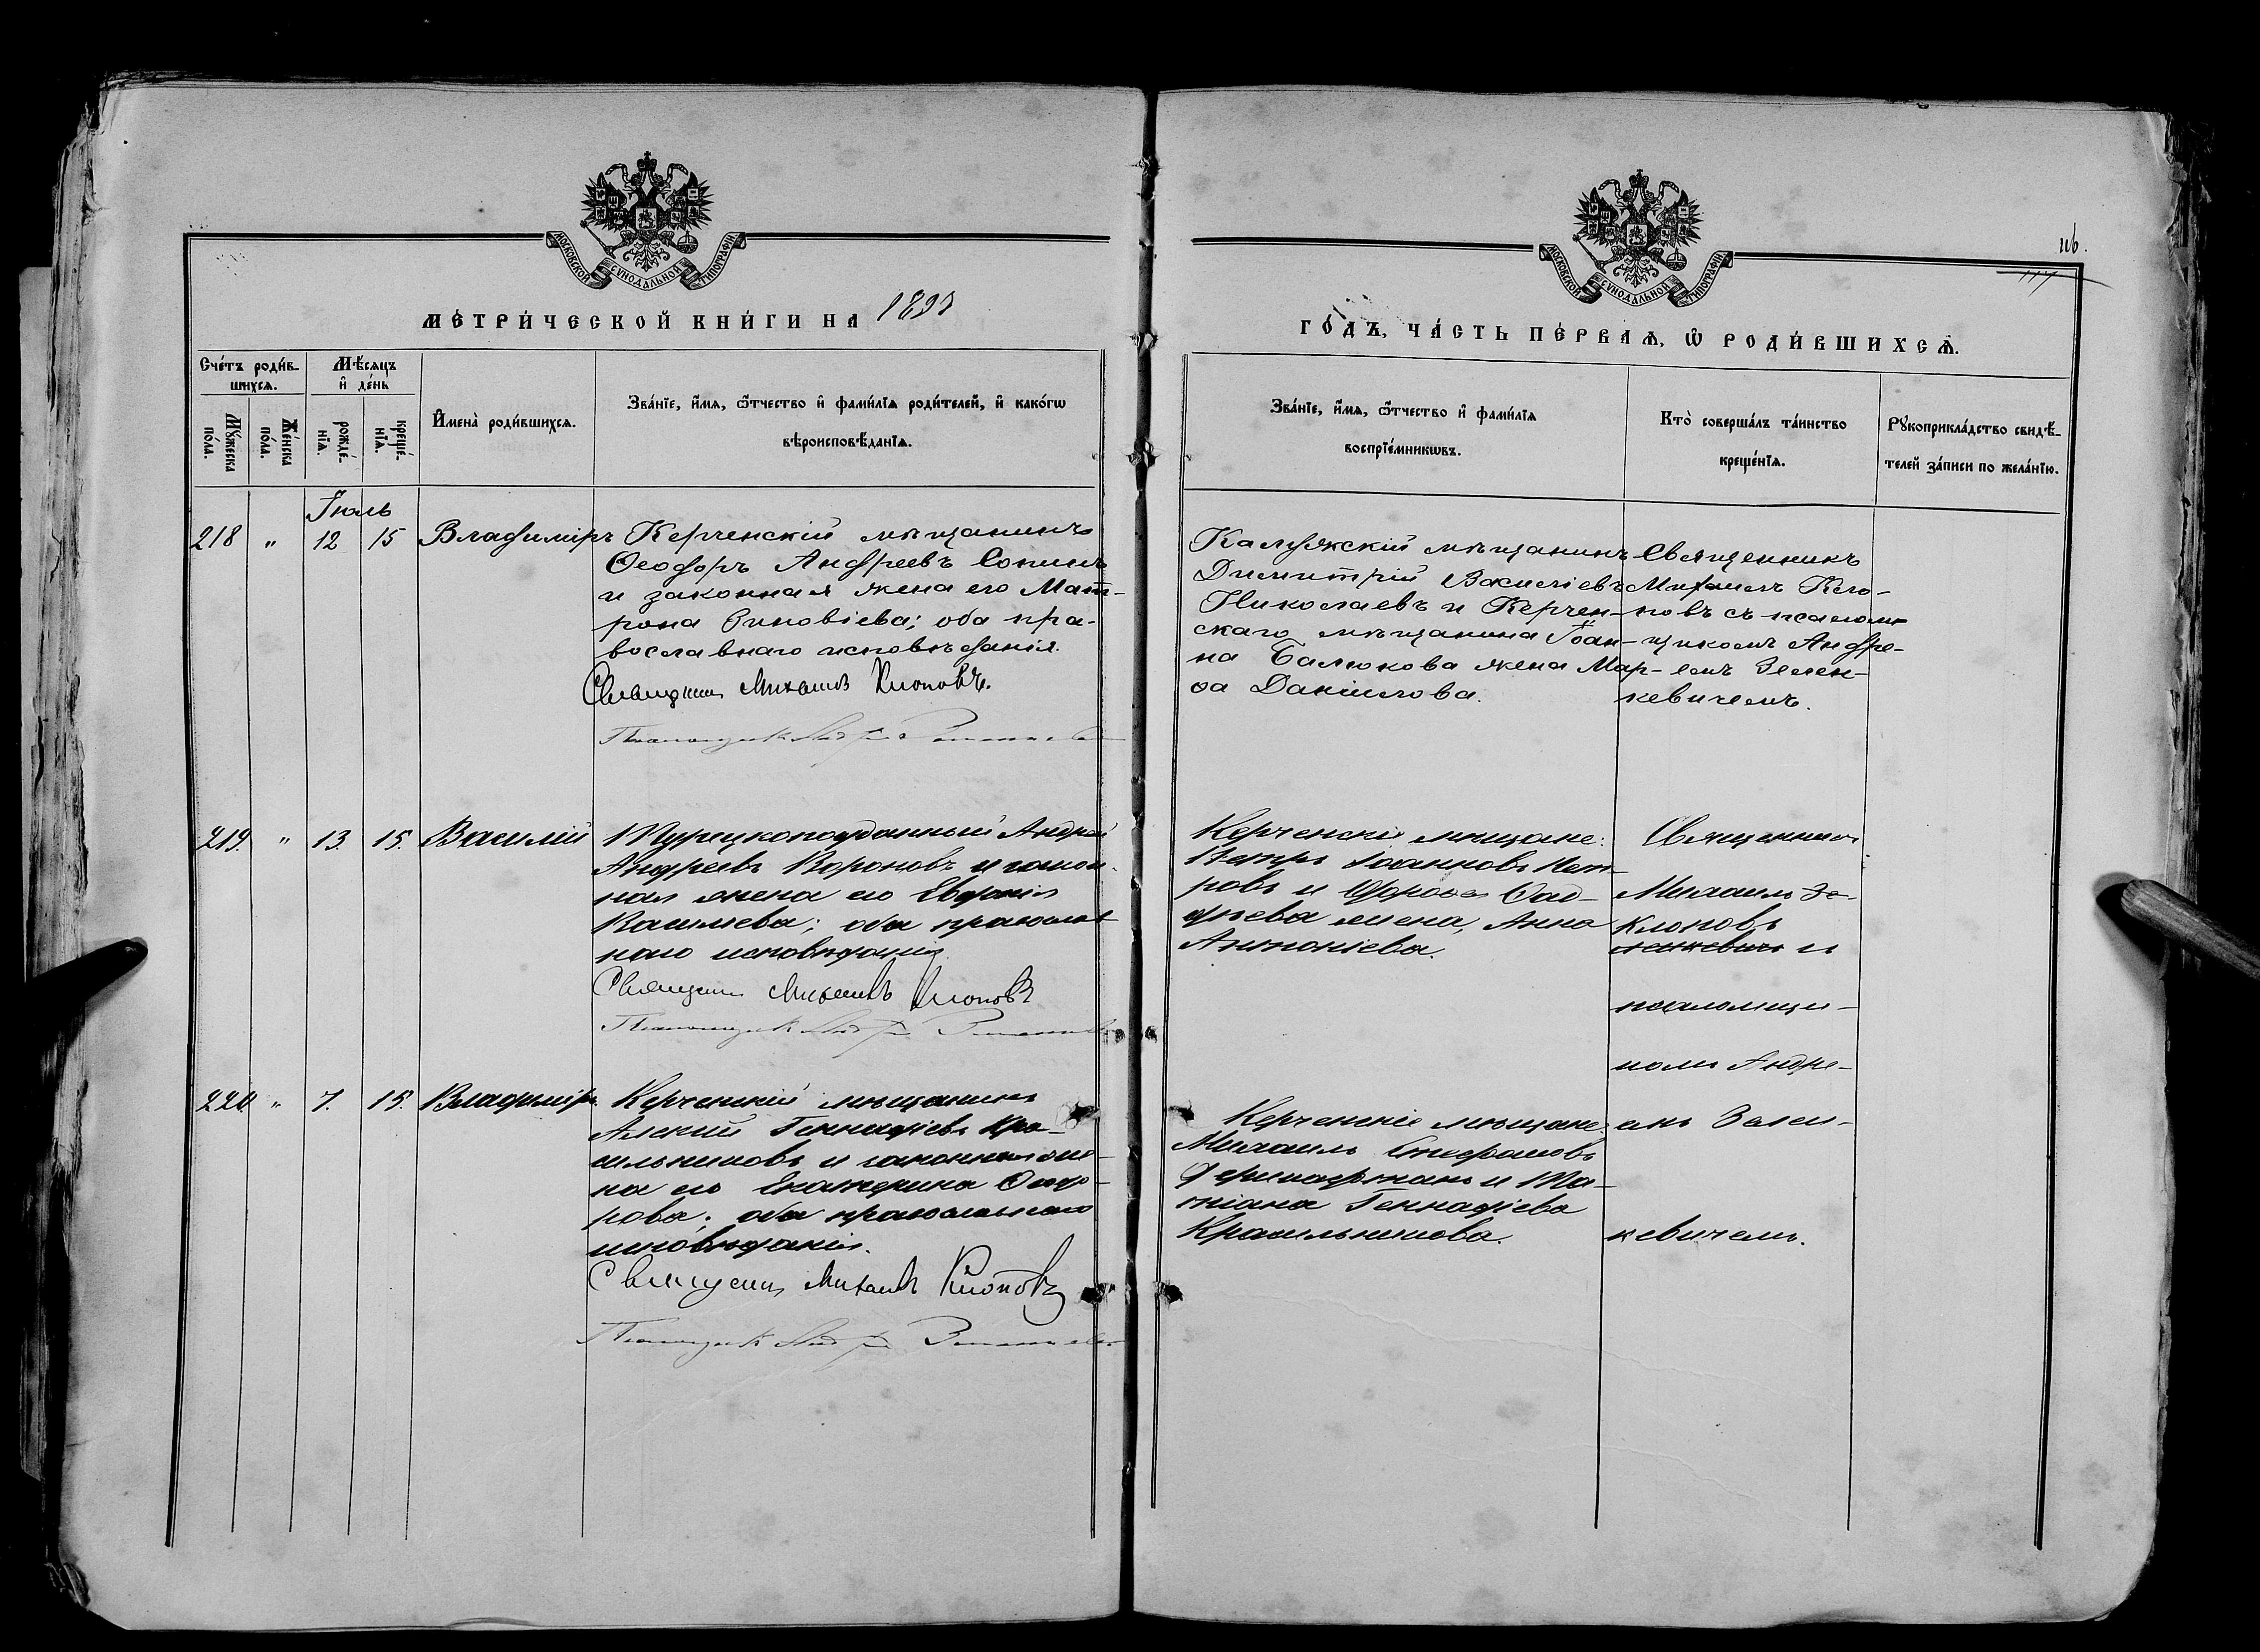 МОСКОВСКОЙ СѴНОДАЛЬНОЙ ТИПОГРАФІИ
МЕТРИ́ЧЕСКОЙ КНИ́ГИ НА
Сче́тъ роди́в-
шихся.
Мѣ́сяцъ
и҆ де́нь
Мꙋ́жеска
по́ла.
Же́нска
по́ла.
рожде́-
нїѧ.
креще́-
нїѧ.
И҆мена̀ роди́вшихсѧ.
Зва́нїе, и҆́мѧ, ѻ҆́тчество и҆ фами́лїѧ роди́телей, и҆ како́гѡ
вѣроисповѣ́данїѧ.
Іюль
218 " 12 15 Владиміръ
Керченскій мѣщанинъ
Ѳеодоръ Андреевъ Сопинъ
и законная жена его Мат-
рона Зиновіева; оба пра-
вославнаго исповѣданія.
Священникъ Михаилъ Клоповъ.
Псаломщикъ Андрей Зеленкевичъ
219. " 13. 15. Василій
Турецкоподданный Андрей
Андреевъ Вороновъ и закон-
ная жена его Евдокія
Василіева; оба православ-
наго исповѣданія
Священникъ Михаилъ Клоповъ
Псаломщикъ Андрей Зеленкевичъ
220 " 7. 15. Владиміръ.
Керченскій мѣщанинъ
Алексій Геннадіевъ Кра-
сильниковъ и законная же-
на его Екатерина Ѳеодо-
рова; оба православнаго
исповѣданія.
Священникъ Михаилъ Клоповъ
Псаломщикъ Андрей Зеленкевичъ
116.
117
МОСКОВСКОЙ СѴНОДАЛЬНОЙ ТИПОГРАФІИ
ГО́ДЪ, ЧА́СТЬ ПЕ́РВАѦ, Ѡ҆ РОДИ́ВШИХСѦ.
Зва́нїе, и҆́мѧ, ѻ҆́тчество и҆ фами́лїѧ
воспрїе́мникѡвъ.
Кто̀ соверша́лъ та́инство
креще́нїѧ.
Рꙋкоприкла́дство свидѣ́-
телей за́писи по жела́нїю.
Калужскій мѣщанинъ
Димитрій Василіевъ
Николаевъ и Керчен-
скаго мѣщанина Іоан-
на Балюкова жена Мар-
ѳа Даніилова.
Священникъ
Михаилъ Кло-
повъ съ псалом-
щикомъ Андре-
емъ Зелен-
кевичемъ.
Керченскіе мѣщане:
Петръ Іоанновъ Пет-
ровъ и
жена, Анна
Антоніева.
Священникъ
Михаилъ Зе-
Клоповъ
ленкевичъ и
псаломщи-
комъ Андре-
емъ Зелен-
кевичемъ.
Керченскіе мѣщане:
Михаилъ Стефановъ
и Та-
тіана Геннадіева
Красильникова.